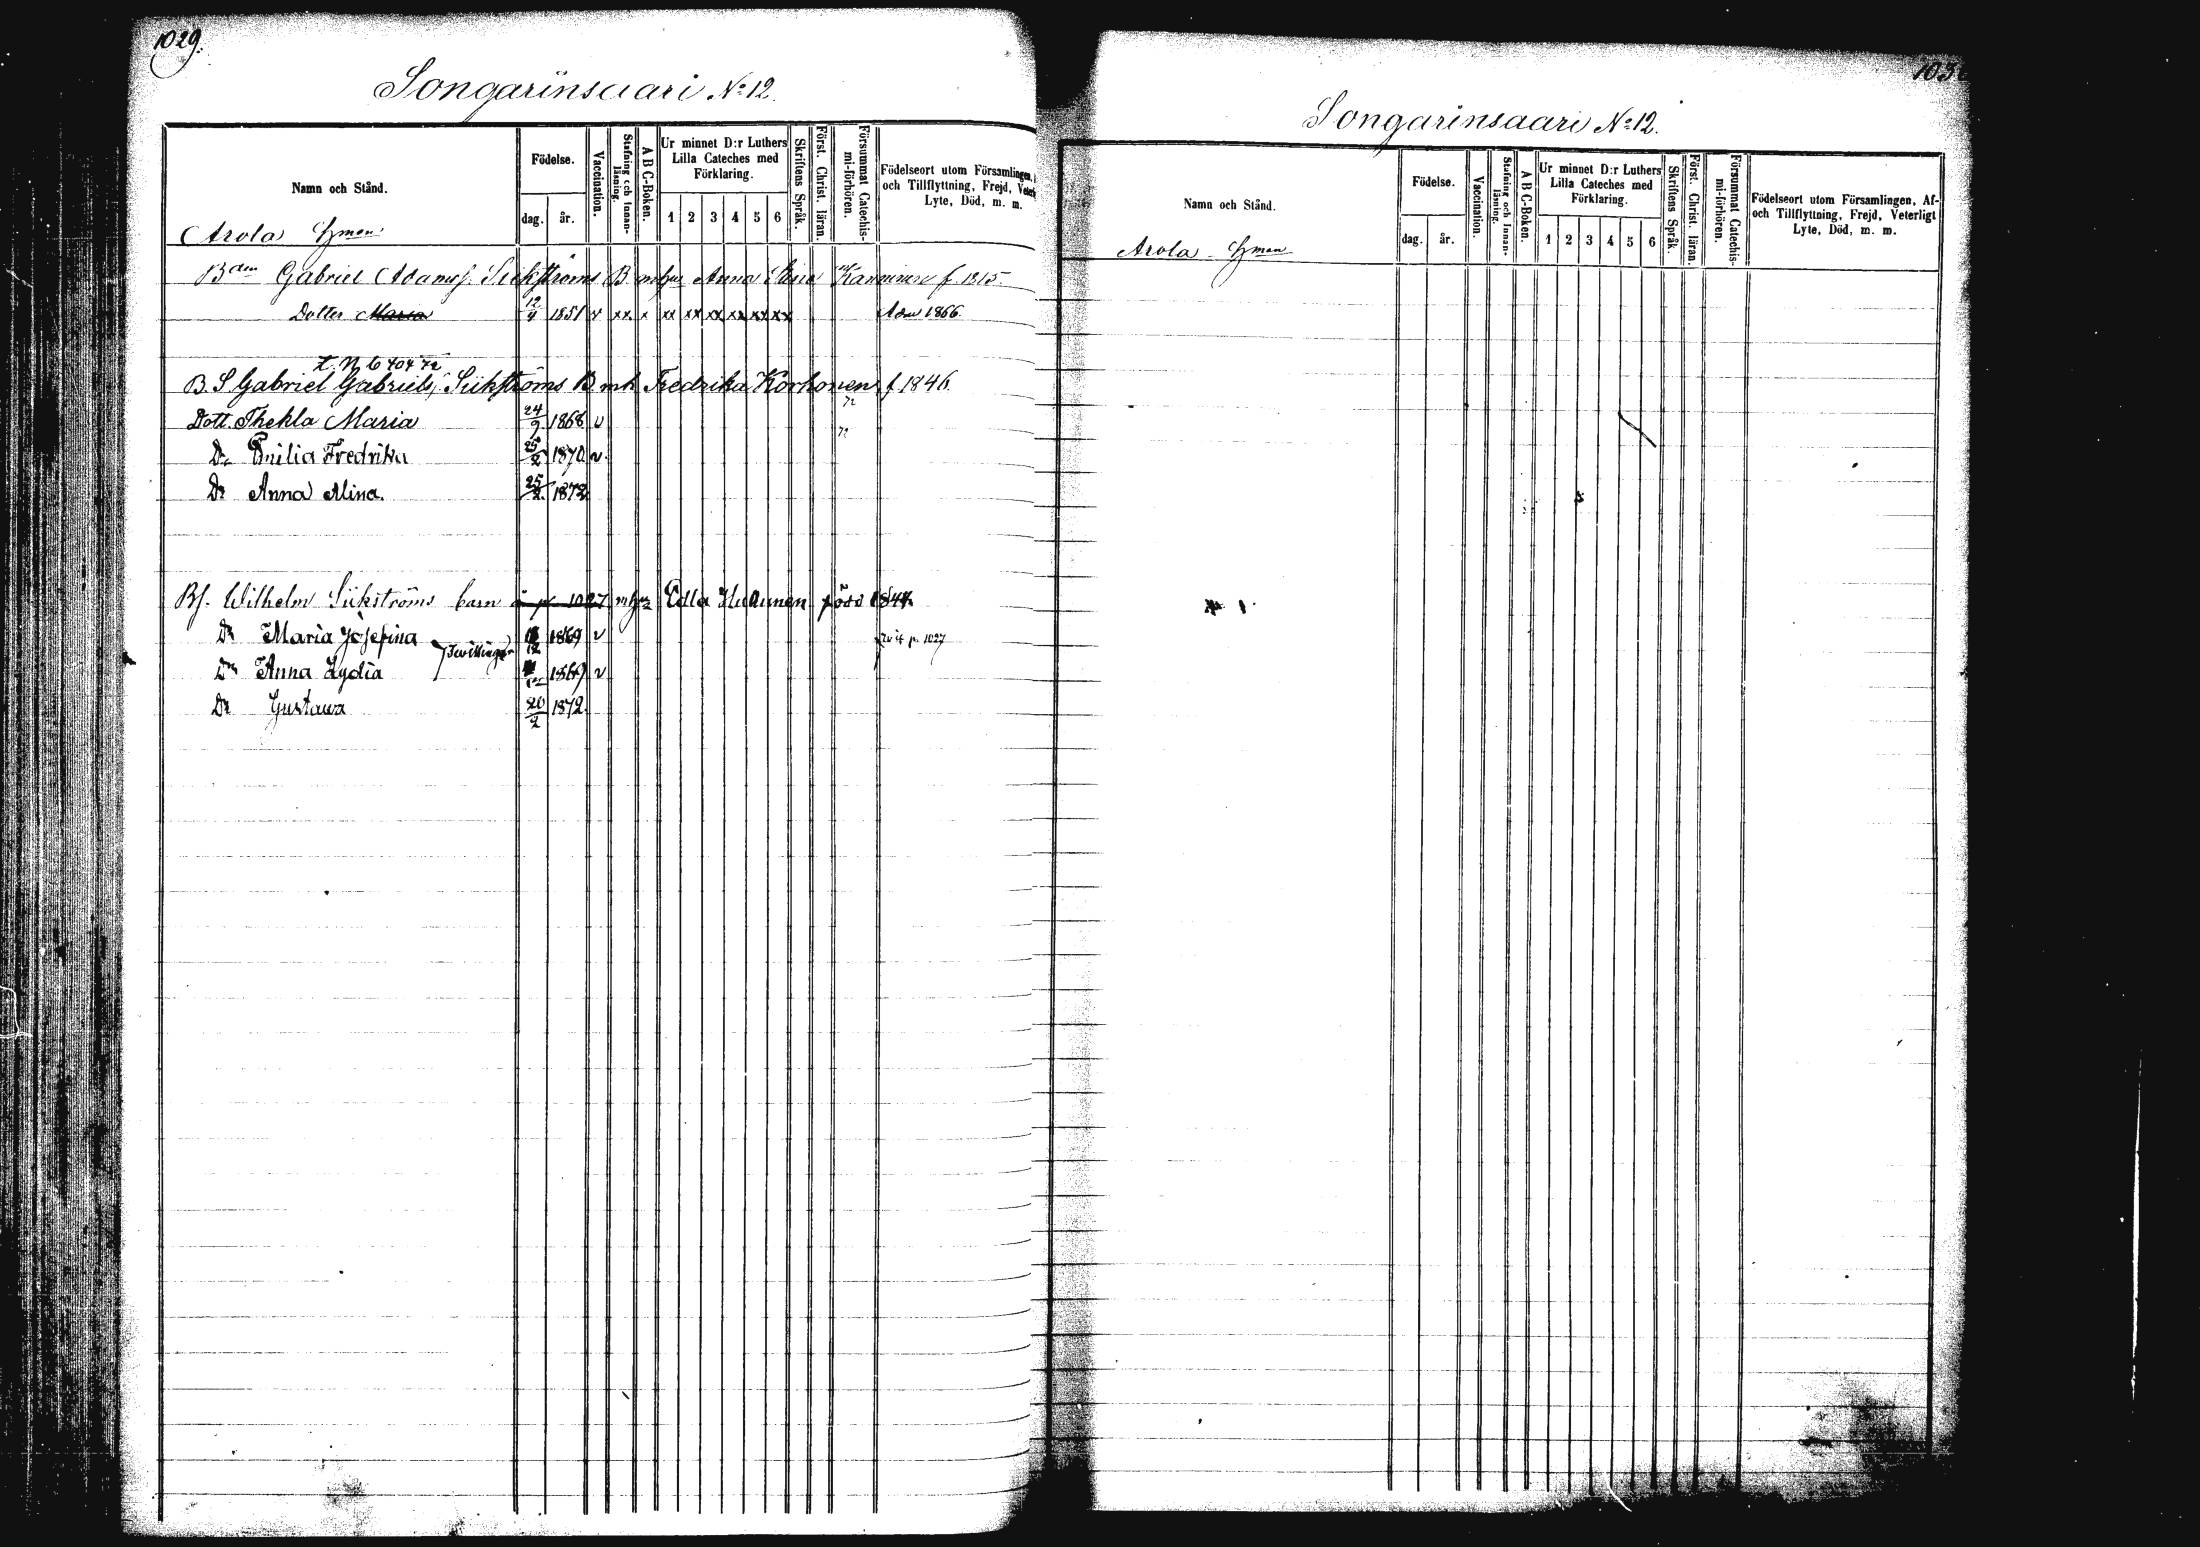 1029.
Songarinsaari No 12.
Namn och Stånd.
Födelse.
dag.
år.
Vaccination.
Stafning och Innan-
läsning.
A B C-Boken.
Ur minnet D:r Luthers
Lilla Cateches med
Förklaring.
1 2 3 4 5 6
Skriftens Språk.
Först. Christ. läran.
Försummat Catechis-
mi-förhören.
Födelseort utom Församlingen,
och Tillflyttning, Frejd,
Lyte, Död, m. m.
Arola Hman
Bden Gabriel Adamsf. Siikströms B Anna f. 1815
Dotter Maria 12/4 1851 v xx x xx xx xx xx xx xx 1866
B. S Gabriel Gabriels. Siikströms B mh Fredrika Korhonen f 1846.
72
Dott. Thekla Maria 24/9 1868 v
72
Dr Emilia Fredrika 25/2 1870 v.
Dr Anna Alina. 25/2 1872
Bf. Wilhelm Siikströms barn å p 1027 Edla född 1844.
Dr Maria Josefina 12 1869 v p. 1027
Tvillingar
Dr Anna Lydia 12 1869 v
Dr Gustava 20/2 1872.
Songarinsaari No 12.
Namn och Stånd.
Födelse.
dag.
år.
Vaccination.
Stafning och Innan-
läsning.
A B C-Boken.
Ur minnet D:r Luthers
Lilla Cateches med
Förklaring.
1 2 3 4 5 6
Skriftens Språk.
Först. Christ. läran.
Försummat Catechis-
mi-förhören.
Födelseort utom Församlingen, Af-
och Tillflyttning, Frejd, Veterligt
Lyte, Död, m. m.
Arola Hman